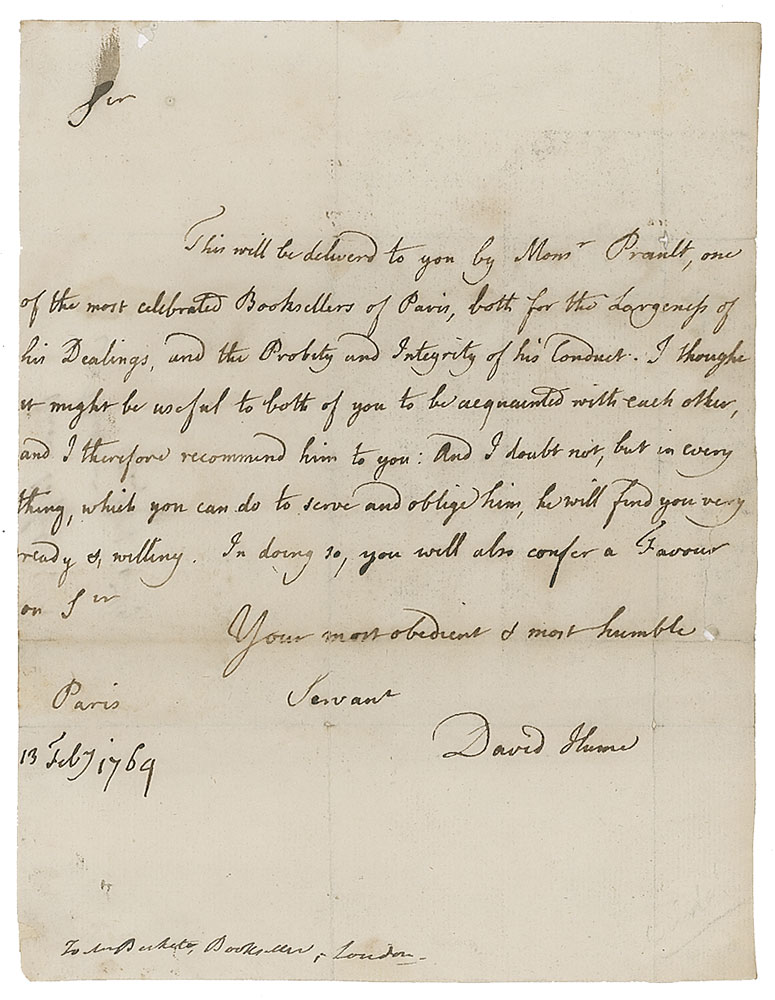 Sir
This will be deliverd to you by Monsr Prault, one
of the most celebrated Booksellers of Paris, both for the Largeness of
his Dealings, and the Probity and Integrity of his Conduct. I thought
it might be useful to both of you to be acquainted with each other,
and I therefore recommend him to you: And I doubt not, but in every
thing, which you can do to serve and oblige him, he will find you very
ready & willing. In doing so, you will also confer a Favour
on Sir
Your most obedient & most humble
Servant
David Hume
Paris
13 Feby 1764
To Mr Beckett, Bookseller, London